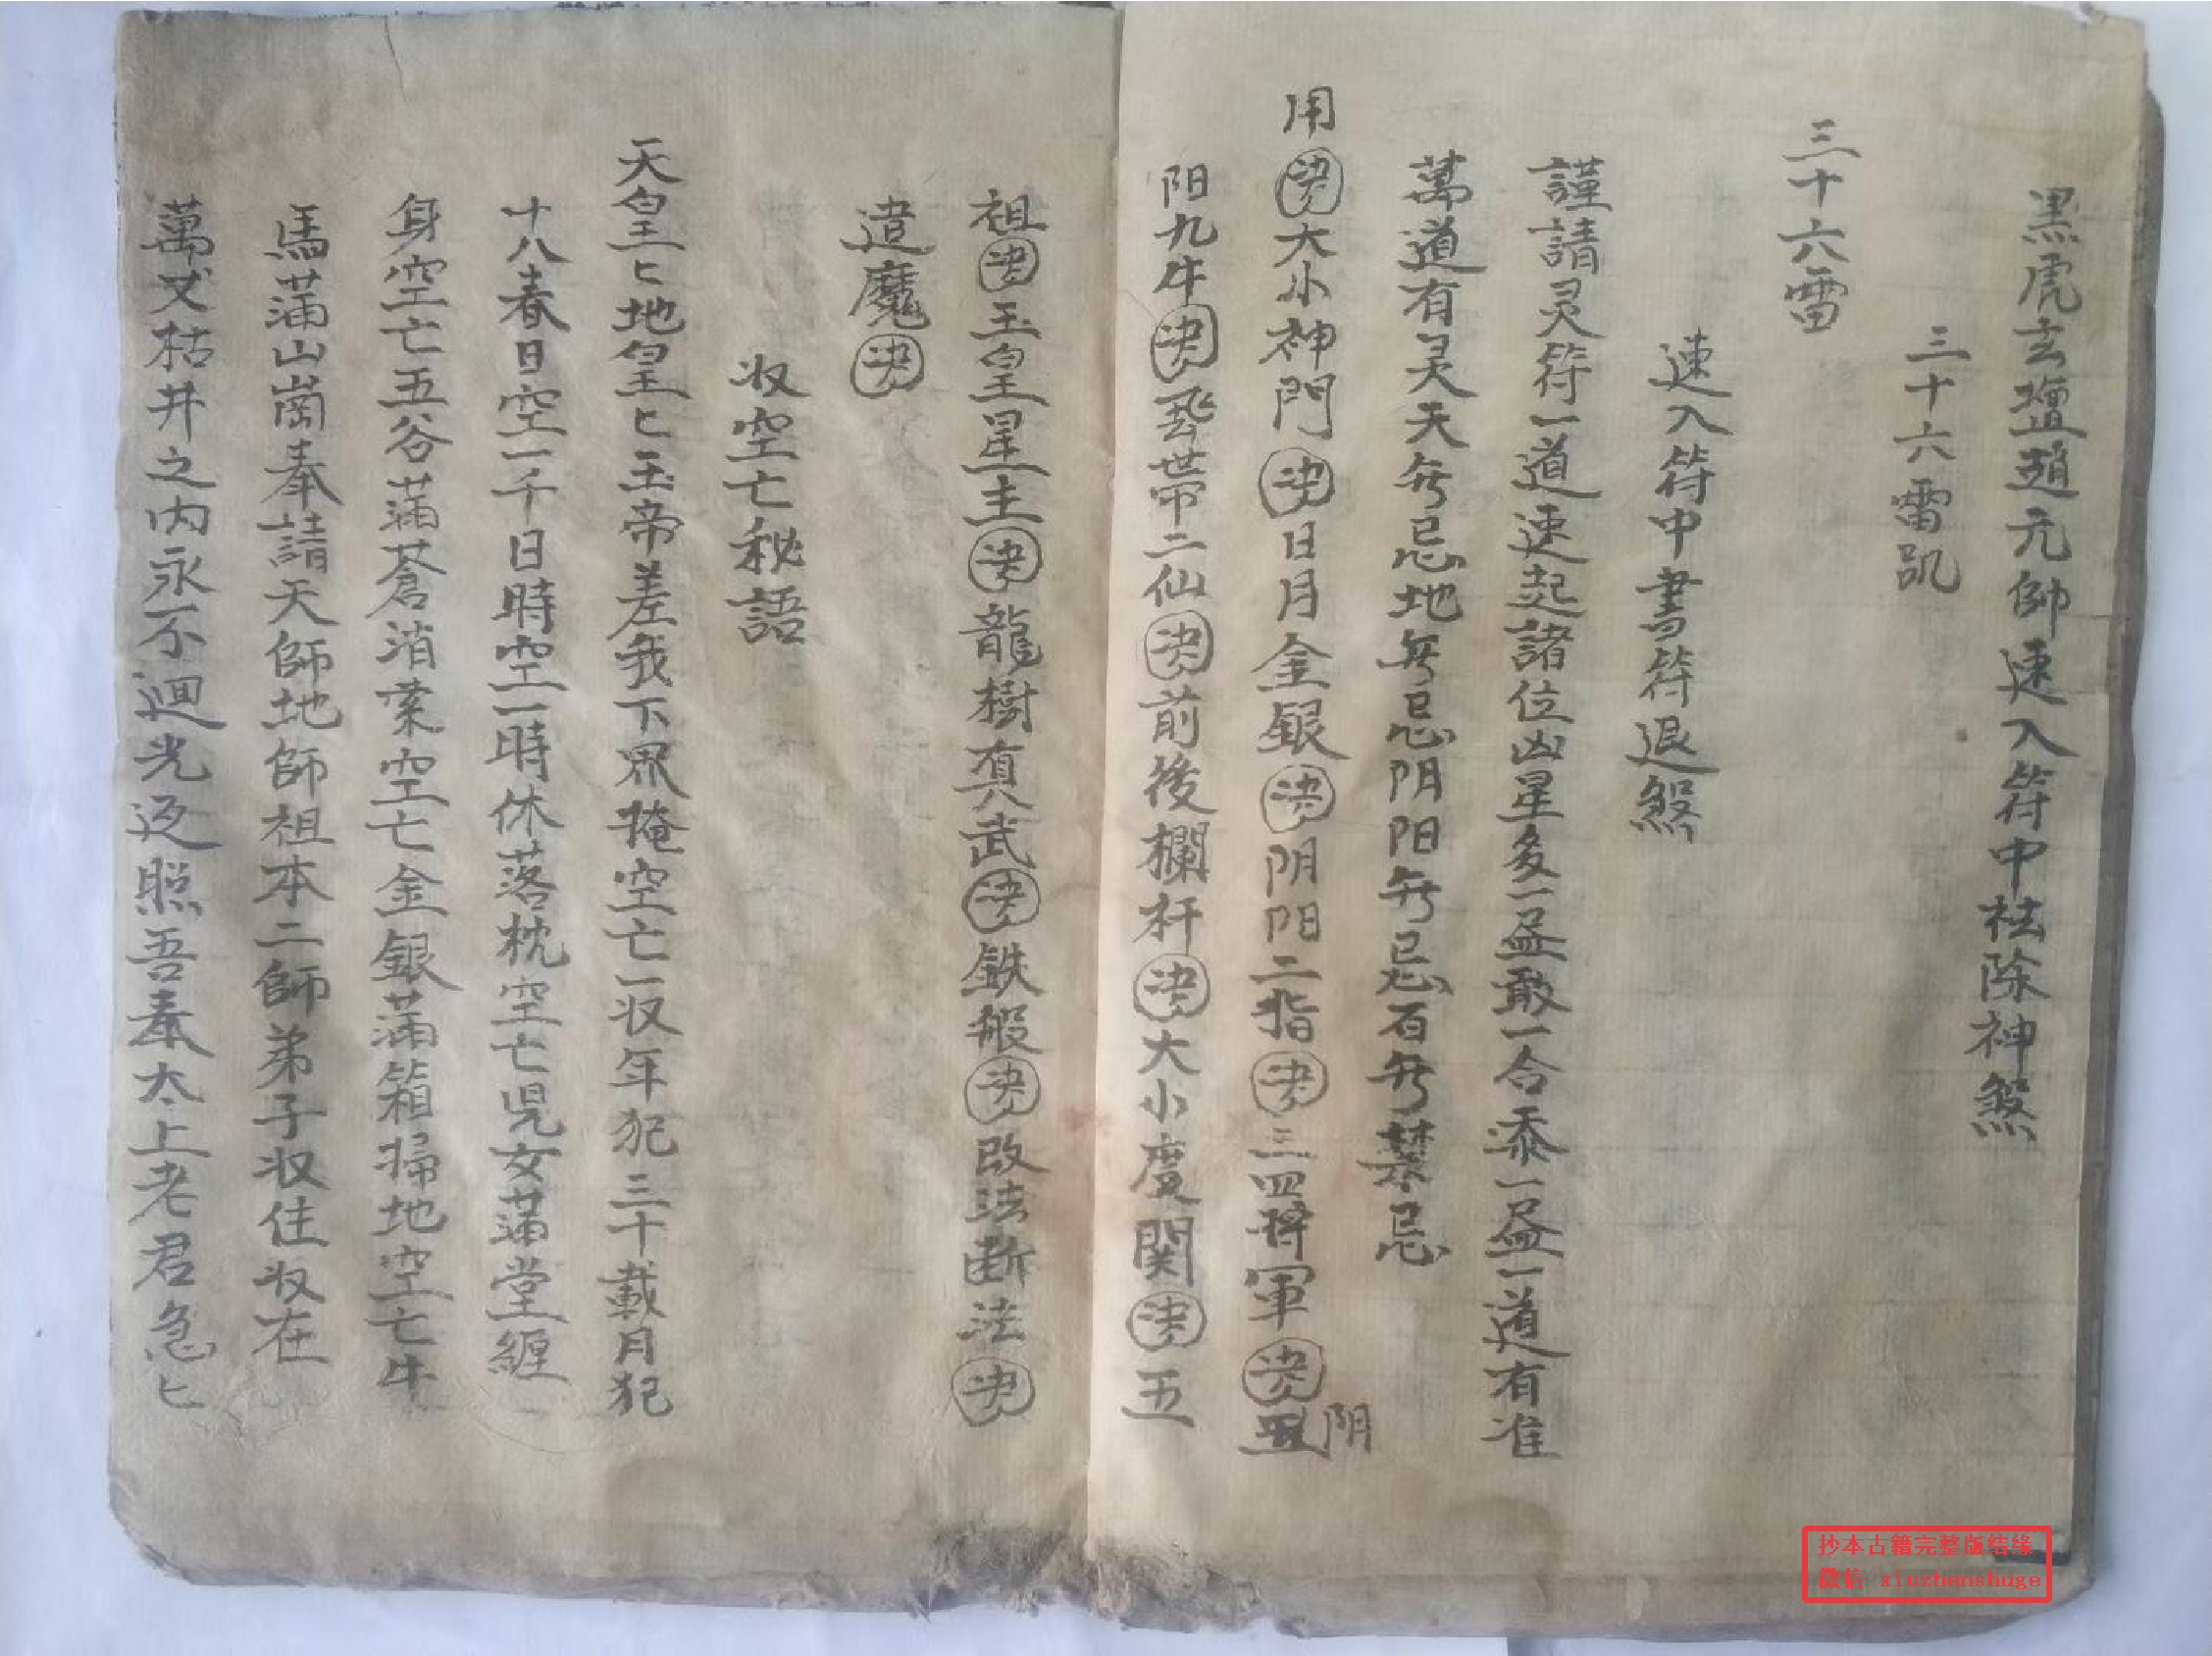 黑虎玄壇趙元帥速入符中祛除神煞
三十六雷
三十六雷
速入符中書符退煞
謹請灵符一道速起諸位凶星多一盈敢一合添一盈一道有准
萬道有灵天無忌地無忌阴阳無忌百無禁忌
用決大小神門決日月金銀決阴阳二指決三四将軍決五阴
阳九牛決飛世帶二仙決前後欄杆決大小度関決五
祖決玉皇星主決龍樹真武決鉄船決改法断法決
遣魔決
収空亡秘語
天皇匕地皇匕玉帝差我下界掩空亡一収年犯三十載月犯
十八春日空一千日時空一時休落枕空亡児女蒲堂纏
身空亡五谷蒲蒼消索空亡金銀蒲箱掃地空亡牛
馬蒲山崗奉請天師地師祖本二師弟子収住収在
萬丈枯井之内永不迴光返照吾奉太上老君急匕
抄本古籍完整版结缘
微信 xiuzhenshuge